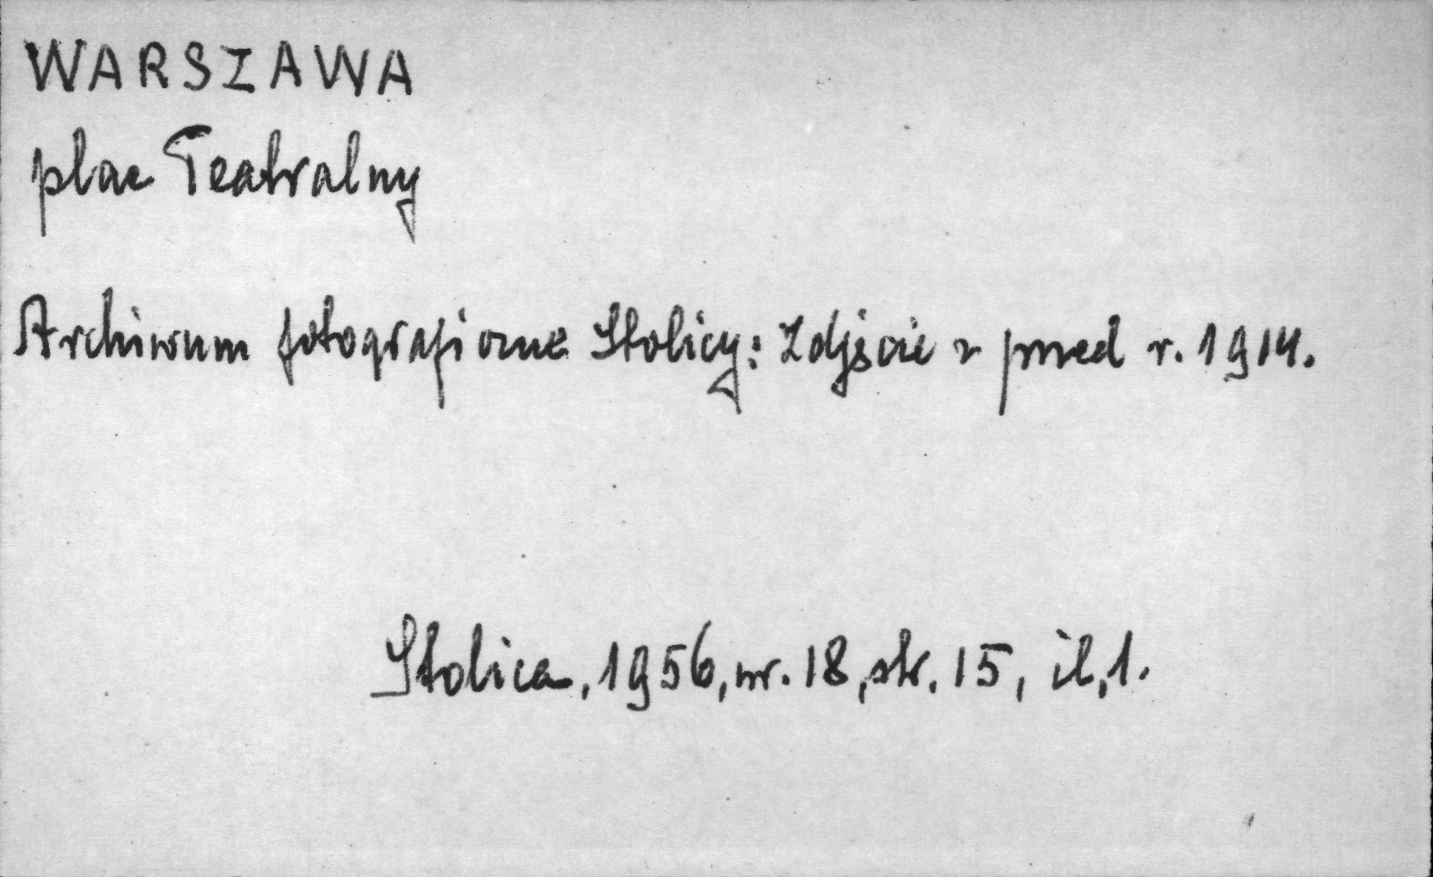 WARSZAWA
plac Teatralny
Archiwum fotograficzne Stolicy: Zdjęcie z przed r. 1914.
Stolica, 1956, nr. 18, str. 15, il. 1.